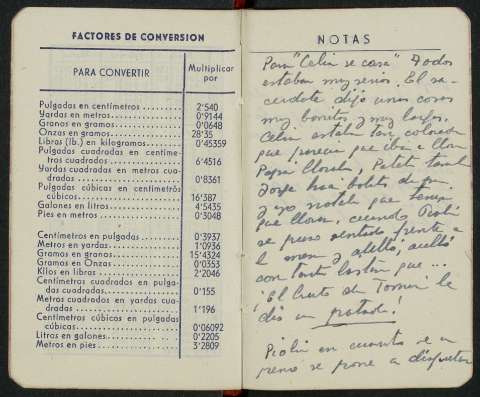 FACTORES DE CONVERSION
PARA CONVERTIR Multiplicar por
Pulgadas en centímetros 2'540
Yardas en metros 0'9144
Granos en gramos 0'0648
Onzas en gramos 28'35
Libras (lb.) en kilogramos 0'45359
Pulgadas cuadradas en centíme-
tros cuadrados 6'4516
Yardas cuadradas en metros cua-
drados 0'8361
Pulgadas cúbicas en centímetros
cúbicos 16'387
Galones en litros 4'5435
Pies en metros 0'3048
Centímetros en pulgadas 0'3937
Metros en yardas 1'0936
Gramos en granos 15'4324
Gramos en Onzas 0'0353
Kilos en libras 2'2046
Centímetros cuadrados en pulga-
das cuadradas 0'155
Metros cuadrados en yardas cua-
dradas 1'196
Centímetros cúbicos en pulgadas
cúbicas 0'06092
Litros en galones 0'2205
Metros en pies 3'2809
NOTAS
Para "Celia se casa" Todos
estaban muy serios. El sa-
cerdote dijo unas cosas
muy bonitas y muy largas.
Celia estaba tan colorada
que parecía que iba a llorar
Papá lloraba,
Jorge hacía bolitas de pan
y yo notaba que tenía
que llorar, cuando Piolín
se puso sentado frente a
la mesa y aulló, aulló
con tanta lástima que...
El Curita de Tomeri le
dió un patada!
Piolín en cuanto se
se pone a disgustar